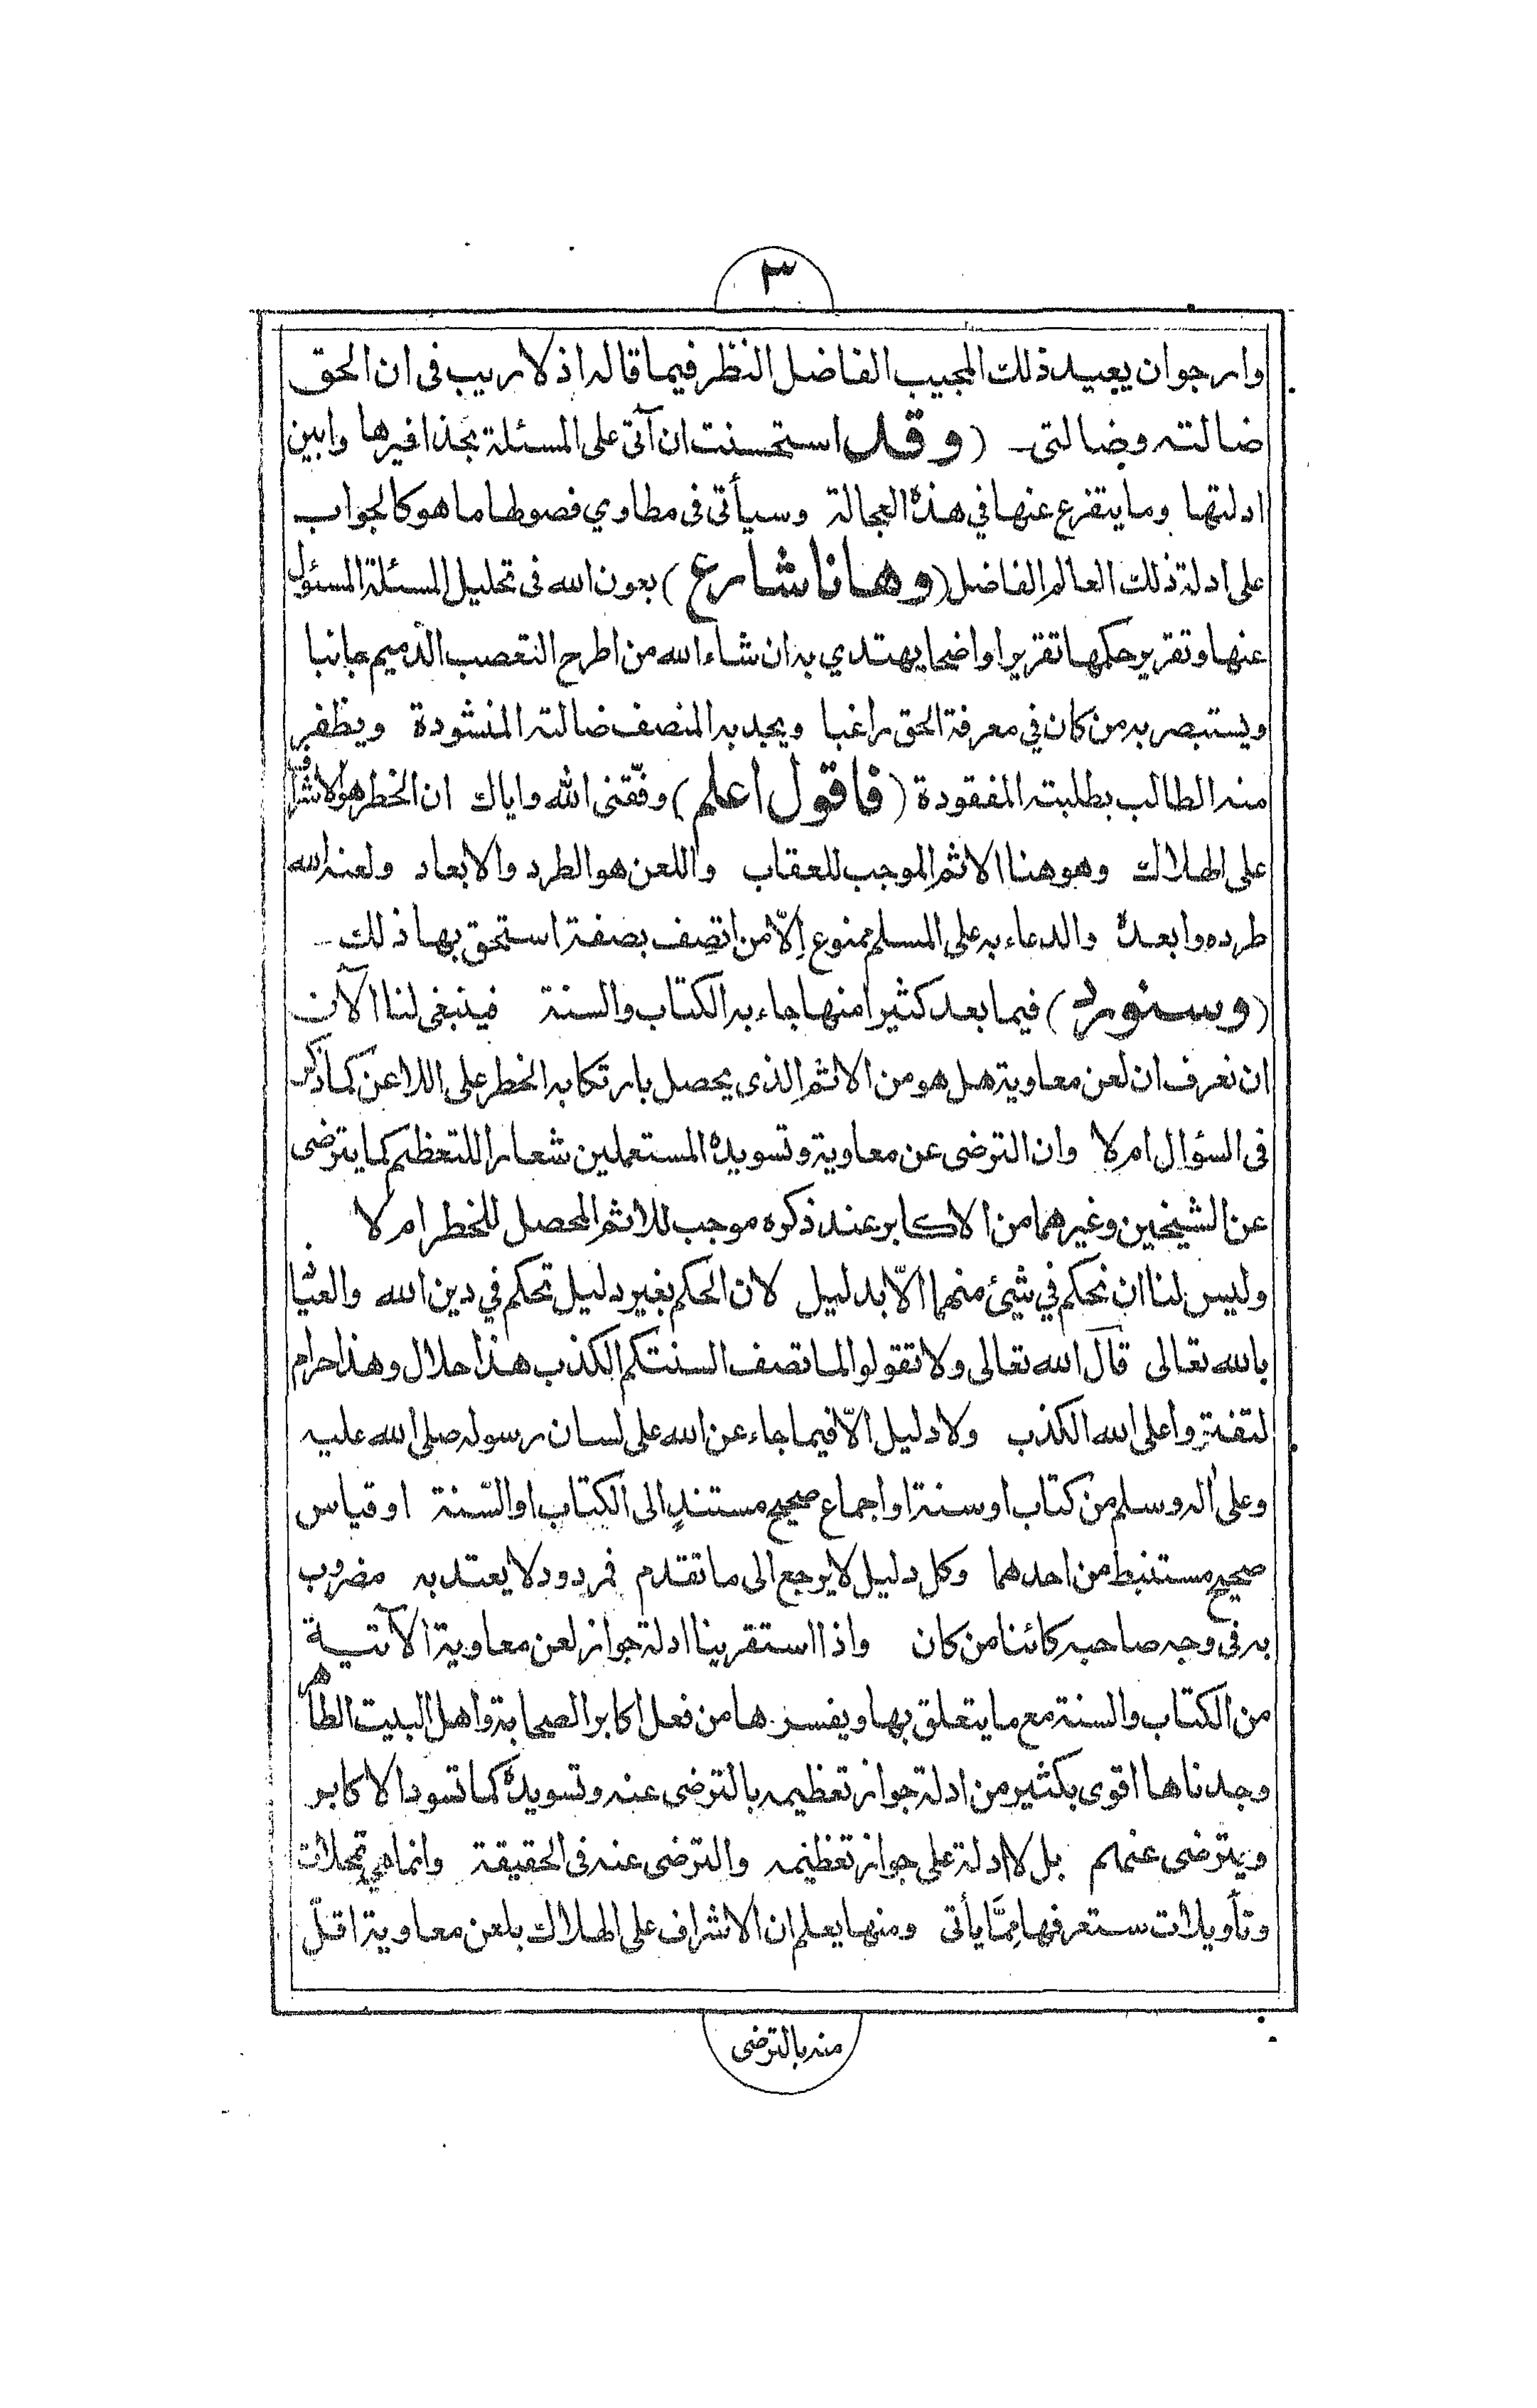 ٣
وارجوان يعيد ذلك المجيب الفاضل النظر فيما قاله اذ لا ريب فى ان الحق
ضالته وضالتى ـ (وقد استحسنت ان آتى على المسئلة بحذافيرها وابين
ادلتها وما يتفرع عنها في هذه العجالة وسيأتى فى مطاوي فصولها ما هو كالجواب
على ادلة ذلك العالم الفاضل (وها نا شارع) بعون الله فى تحليل المسئلة المسئول
عنها وتقرير حكمها تقريرا واضحا يهتدي به ان شاء الله من اطرح التعصب الذميم جانبا
ويستبصر به من كان في معرفة الحق راغبا ويجد به المنصف ضالته المنشودة ويظفر
منه الطالب بطلبته المفقودة (فاقول اعلم) وفّقنى الله واياك ان الخطر هو الاشراف
على الهلاك وهو هنا الاثم الموجب للعقاب واللعن هو الطرد والابعاد ولعنه الله
طرده وابعده والدعاء به على المسلم ممنوع إلّا من اتصف بصفة استحق بها ذلك ـ
(وسنورد) فيما بعد كثيرا منها جاء به الكتاب والسنة فينبغى لنا الآن
ان نعرف ان لعن معاوية هل هو من الاثم الذى يحصل بارتكابه الخطر على اللاعن كما ذكر
فى السؤال ام لا وان الترضى عن معاوية وتسويده المستعملين شعارا للتعظيم كما يترضى
عن الشيخين وغيرهما من الاكابر عند ذكره موجب للاثم المحصل للخطر ام لا
وليس لنا ان نحكم في شيئ منهما الّا بدليل لان الحكم بغير دليل تحكم في دين الله والعياذ
بالله تعالى قال الله تعالى ولا تقولوا لما تصف السنتكم الكذب هذا حلال وهذا حرام
لتفتروا على الله الكذب ولا دليل الّا فيما جاء عن الله على لسان رسوله صلى الله عليه
وعلى اله وسلم من كتاب او سنة او اجماع صحيح مستندٍ الى الكتاب او السّنة او قياس
صحيح مستنبط من احدهما وكل دليل لا يرجع الى ما تقدم فمردود لا يعتد به مضروب
به فى وجه صاحبه كائنا من كان واذا استقرينا ادلة جواز لعن معاوية الآتية
من الكتاب والسنة مع ما يتعلق بها ويفسرها من فعل اكابر الصحابة واهل البيت الطاهر
وجدناها اقوى بكثير من ادلة جواز تعظيمه بالترضى عنه وتسويده كما تسود الاكابر
ويترضى عنهم بل لا ادلة على جواز تعظيمه والترضى عنه فى الحقيقة وانما هي تمحلات
وتأويلات ستعرفها مِمَّا يأتى ومنها يعلم ان الاشراف على الهلاك بلعن معاوية اقلّ
منه بالترضى